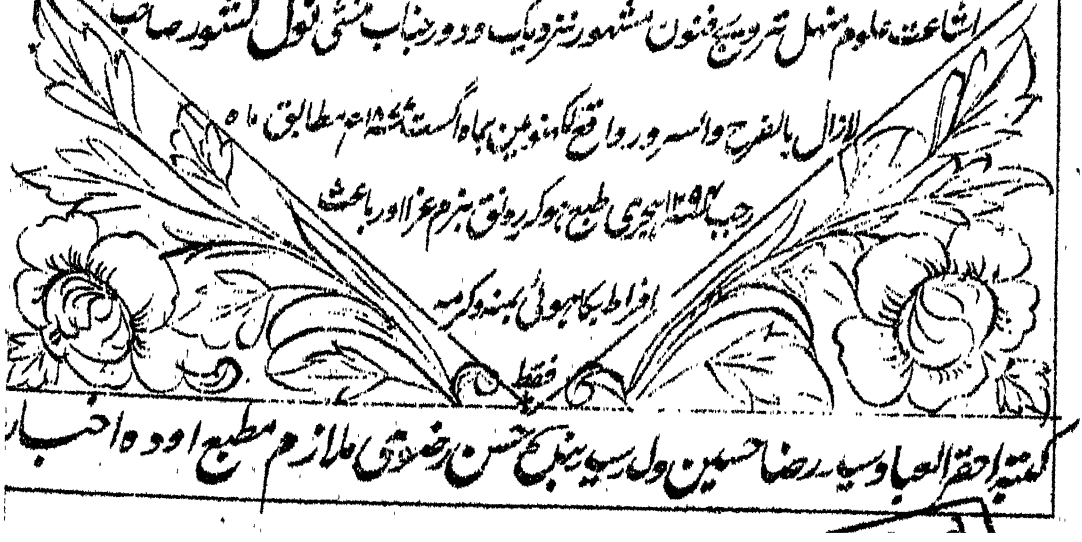 اشاعت علوم منہل ترویج فنون مشہور نزدیک و دور جناب منشی نول کشور صاحب
لازال بالفرح والسرور واقع لکھنؤ میں بماہ اگست ۱۸۷۷ء مطابق ماہ
رجب ۱۲۹۴ہجری طبع ہوکر رونق بزم عزا اور باعث
افراط بکا ہوئی بمنہ وکرمہ
فقط
کتبہ احقر العباد سید رضا حسین ولد سید بندہ حسن رضوی ملازم مطبع اودہ اخبار